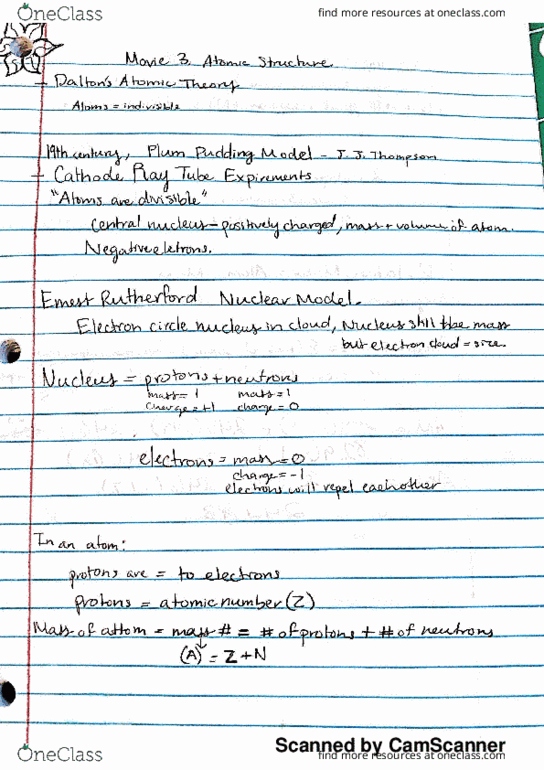 OneClass
find more resources at oneclass.com
Movie 3. Atomic Structure
- Dalton's Atomic Theory
Atoms = indivisible
19th century, Plum Pudding Model - J. J. Thompson
- Cathode Ray Tube Expirements
"Atoms are divisible"
central nucleus - positively charged, mass + volume of atom.
Negative eletrons.
Ernest Rutherford Nuclear Model.
Electron circle nucleus in cloud, Nucleus still the mass
but electron cloud = size.
Nucleus = protons + neutrons
mass = 1 mass = 1
charge = +1 charge = 0
electrons = mass = 0
charge = -1
electrons will repel eachother
In an atom:
protons are = to electrons
protons = atomic number (Z)
Mass of attom = mass # = # of protons + # of neutrons
(A) = Z + N
Scanned by CamScanner
OneClass
find more resources at oneclass.com